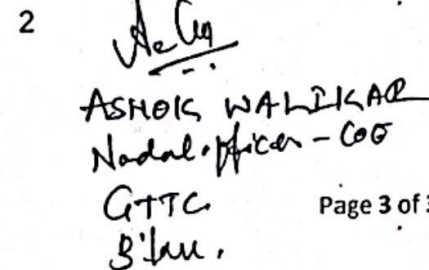 2
ASHOK WALIKAR
Nodal officer - COE
GTTC
Page 3 of 3